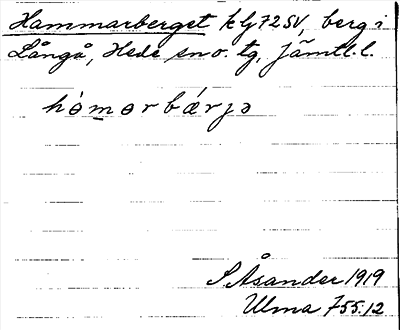 Hammarberget k lj 72 SV, berg i
Långå, Hede sn o. tg, Jämtl. l.
hòmɵrbǽrjə
S Åsander 1919
Ulma 755:12